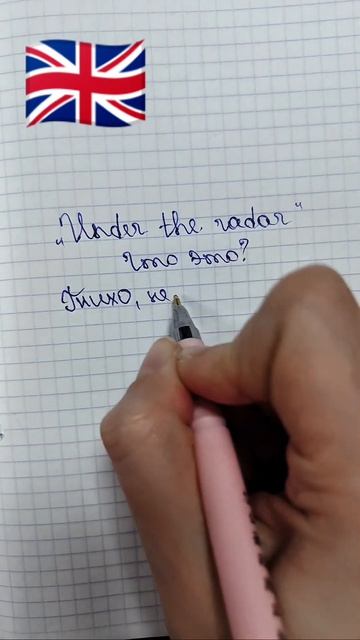 „Under the radar"
Что это?
Тихо, не